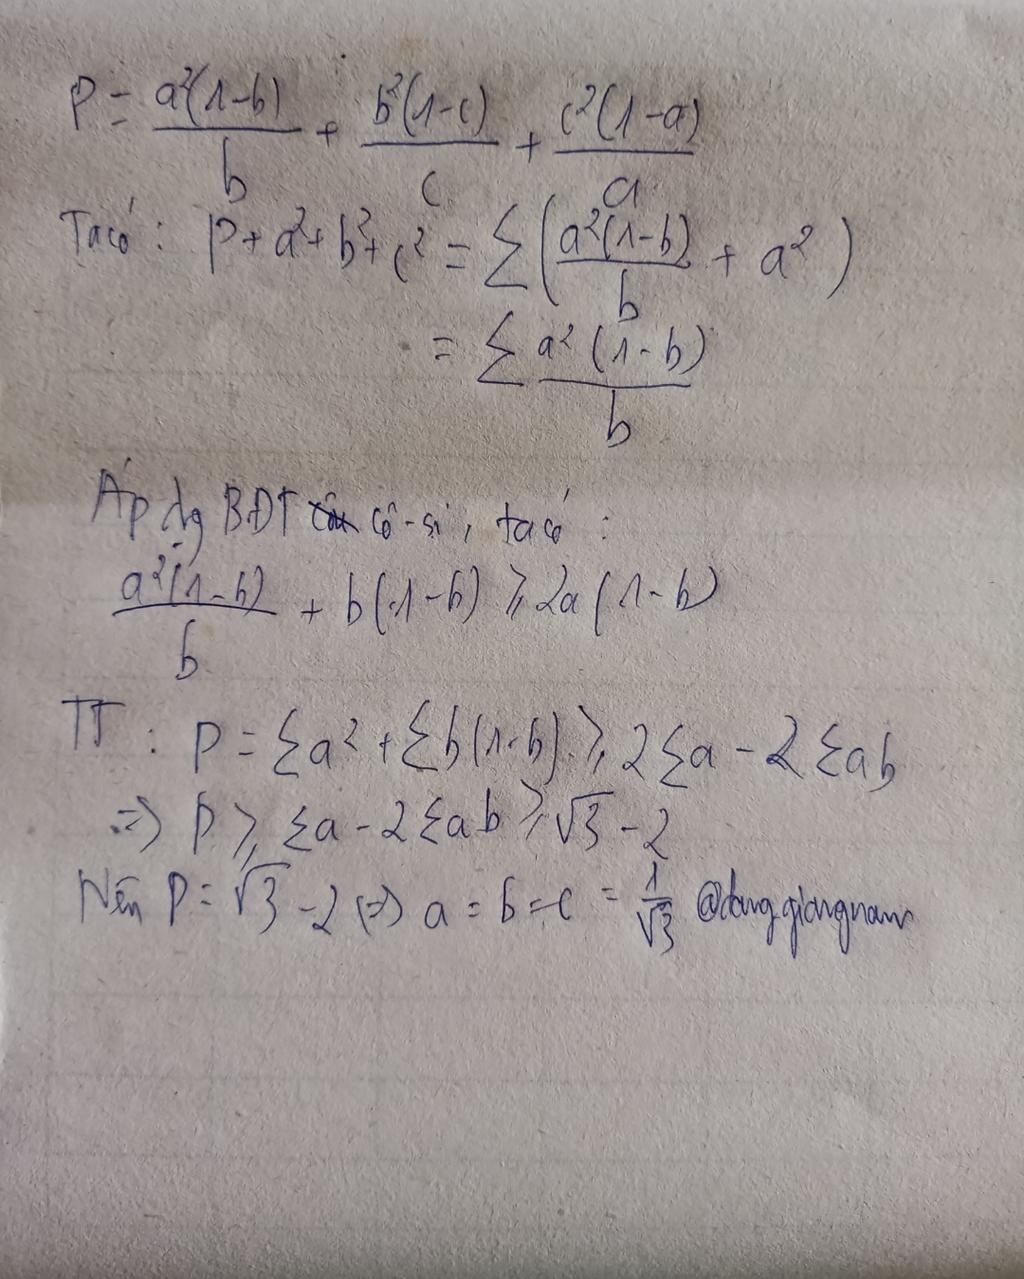 P = a²(1-b)/b + b²(1-c)/c + c²(1-a)/a
Ta có: P + a² + b² + c² = Σ(a²(1-b)/b + a²)
= Σ a²(1-b)/b
Áp dg BĐT cô-si, ta có:
a²(1-b)/b + b(1-b) ≥ 2a(1-b)
TT: P = Σa² + Σb(1-b) ≥ 2Σa - 2Σab
=> P ≥ Σa - 2Σab ≥ √3 - 2
Nên P = √3 - 2 (=>) a = b = c = 1/√3 @danggiangnam